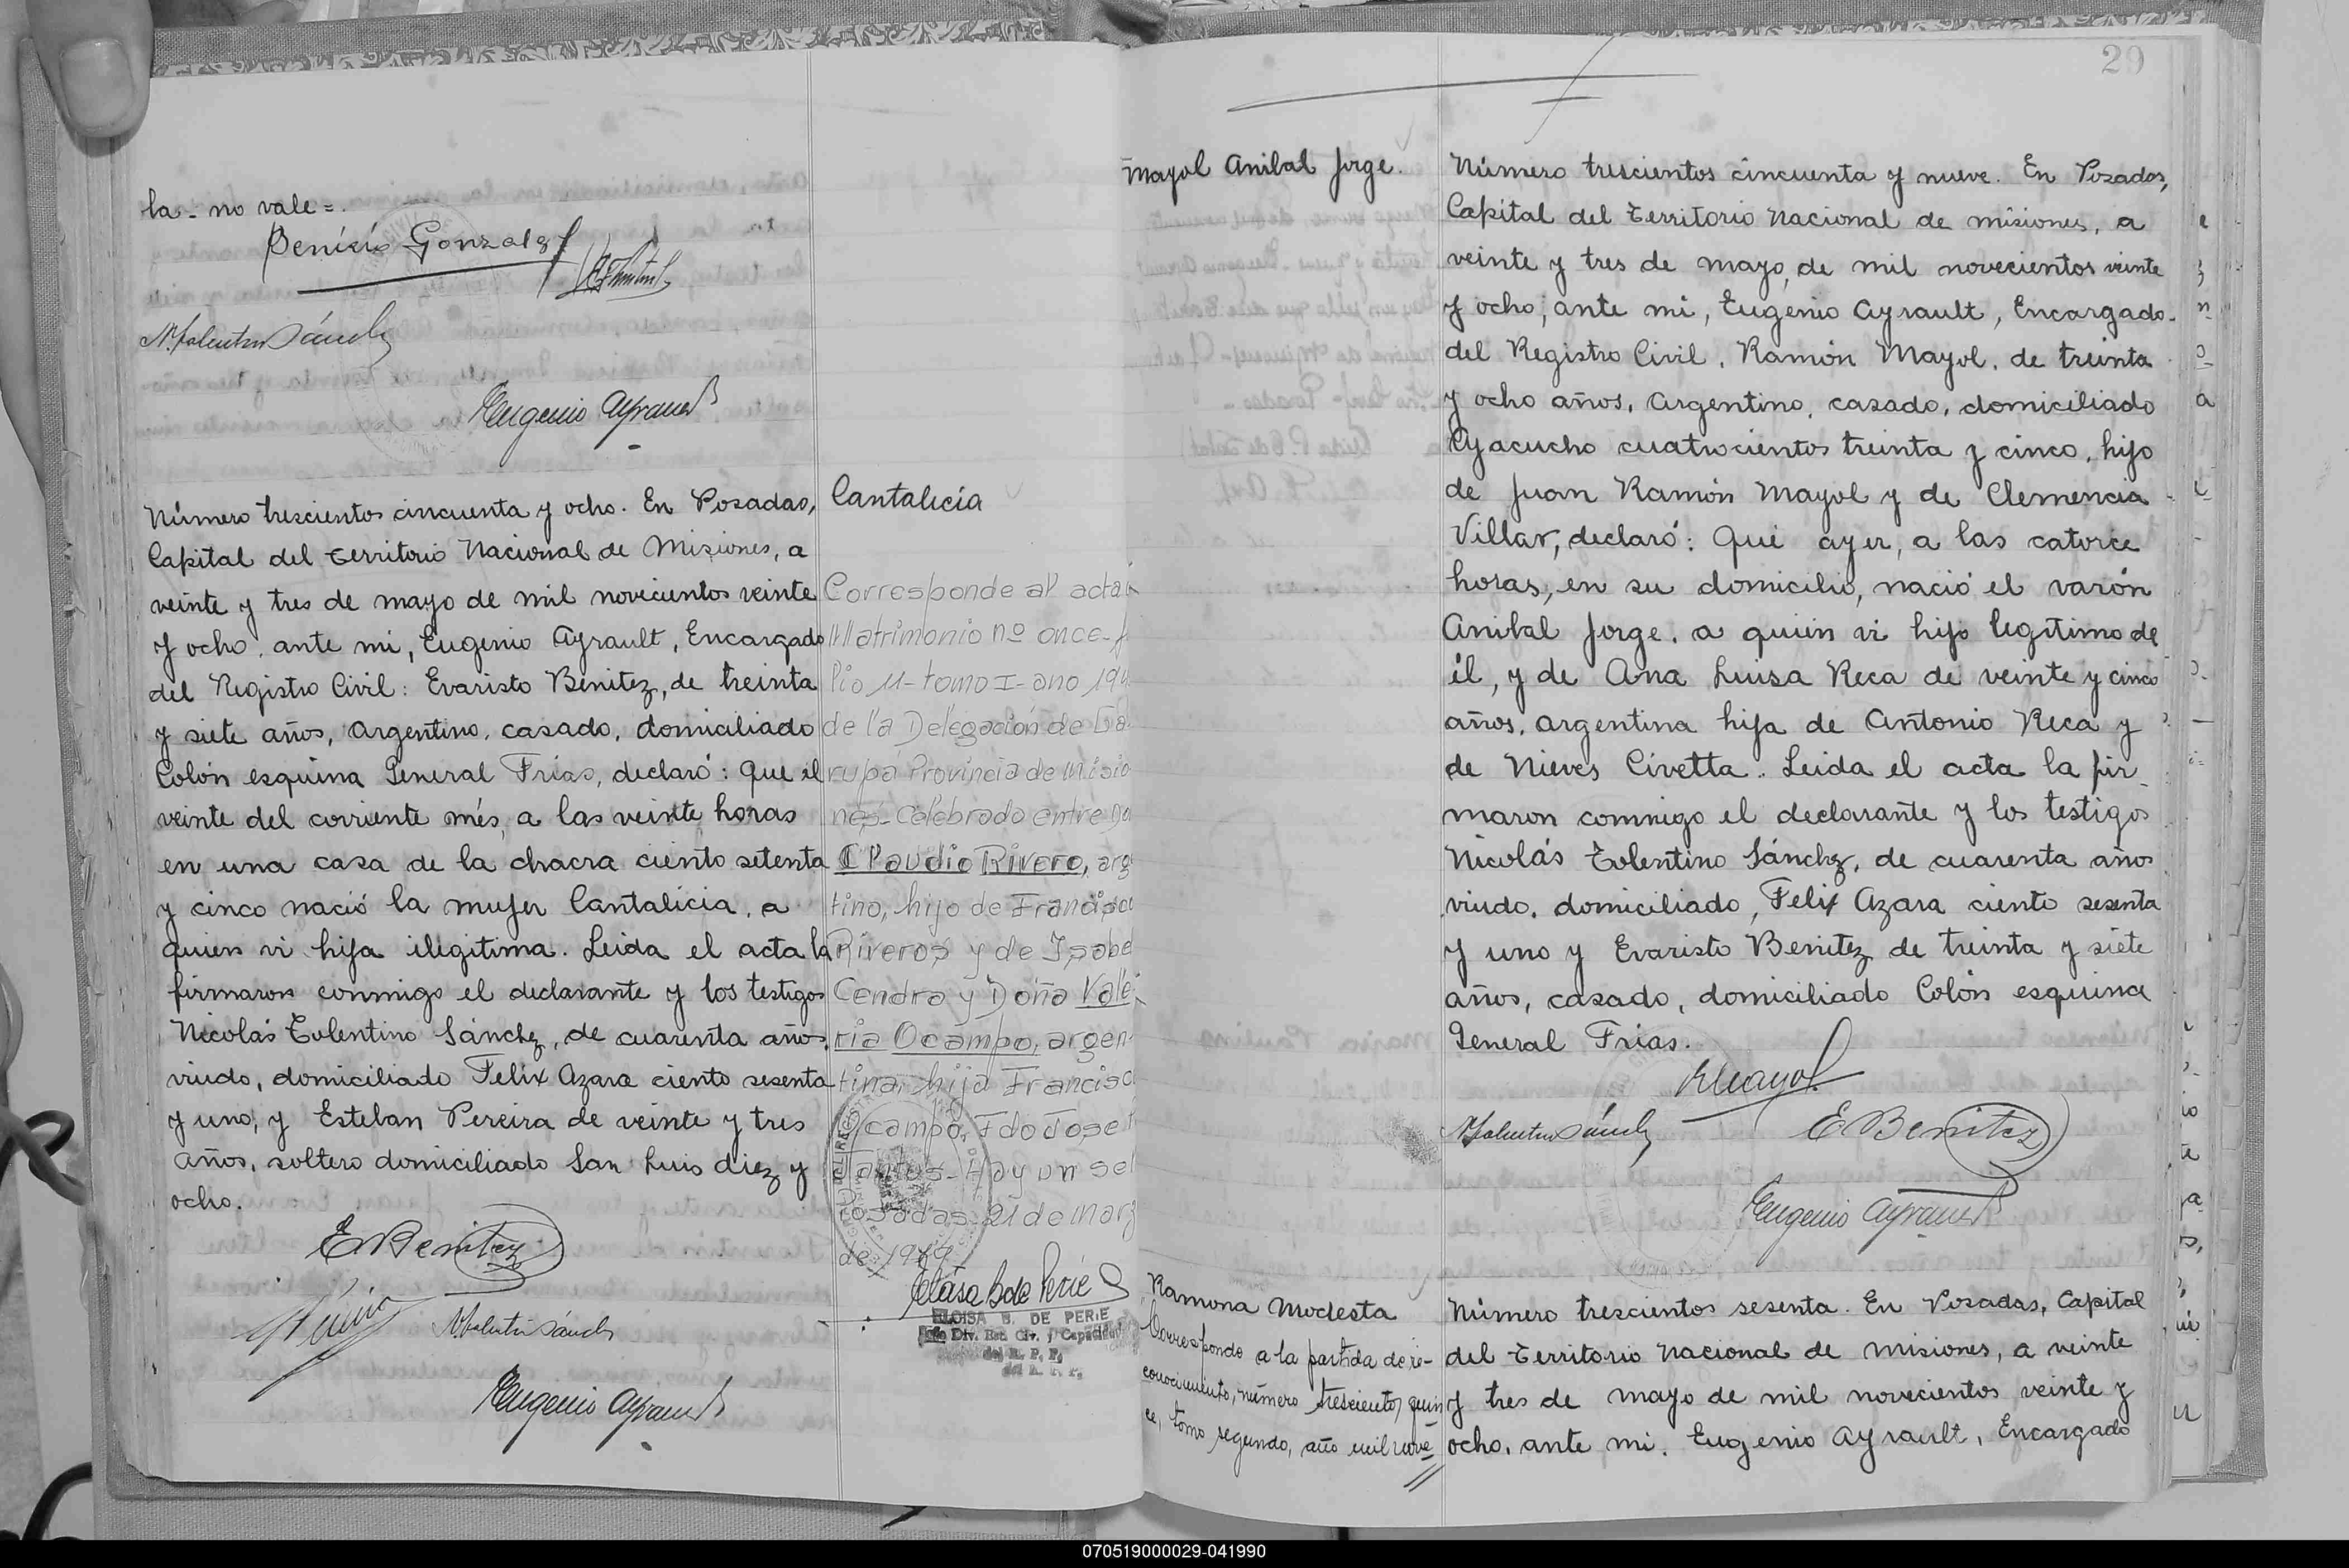 la - no vale =.
Benicio Gonzalez
N. Tolentino Sánchez
Eugenio Ayrault
Número trescientos cincuenta y ocho. En Posadas,
Capital del Territorio Nacional de Misiones, a
veinte y tres de mayo de mil novecientos veinte
y ocho, ante mi, Eugenio Ayrault, Encargado
del Registro Civil: Evaristo Benitez, de treinta
y siete años, argentino, casado, domiciliado
Colón esquina General Frias, declaró: Que el
veinte del corriente més, a las veinte horas
en una casa de la chacra ciento setenta
y cinco nació la mujer Cantalicia, a
quien vi hija ilegitima. Leida el acta la
firmaron conmigo el declarante y los testigos
Nicolás Tolentino Sánchez, de cuarenta años,
viudo, domiciliado Felix Azara ciento sesenta
y uno, y Esteban Pereira de veinte y tres
años, soltero domiciliado San Luis diez y
ocho.
E Benitez
N. Tolentino Sánchez
Eugenio Ayrault
Cantalicia
Corresponde al acta
Matrimonio nº once - f
lio 11 - tomo I - ano 19
de la Delegación de Ga
rupa Provincia de Misio
nes - Celebrado entre Do
Claudio Rivero, arg
tino, hijo de Francisco
Riveros y de Isabe
Cendra y Doña Vale
ria Ocampo, argen
tina, hija Francisc
Ocampo. Fdo Jose
Hay un sel
Posadas 21 de Marz
de 19
Elóisa B de Perié
ELOISA B. DE PERIE
Jefe Div. Est. Civ. y Capacidad
del R. P. P.
del R. P. P.
20
Mayol Anibal Jorge.
Número trescientos cincuenta y nueve. En Posadas,
Capital del Territorio Nacional de Misiones, a
veinte y tres de mayo, de mil novecientos veinte
y ocho, ante mi, Eugenio Ayrault, Encargado
del Registro Civil, Ramón Mayol, de treinta
y ocho años, argentino, casado, domiciliado
Ayacucho cuatrocientos treinta y cinco, hijo
de Juan Ramón Mayol y de Clemencia
Villar, declaró: Que ayer, a las catorce
horas, en su domicilio, nació el varón
Anibal Jorge, a quien vi hijo legitimo de
él, y de Ana Luisa Reca de veinte y cinco
años, argentina hija de Antonio Reca y
de Nieves Civetta. Leida el acta la fir-
maron conmigo el declarante y los testigos
Nicolás Tolentino Sánchez, de cuarenta años
viudo, domiciliado, Felix Azara ciento sesenta
y uno y Evaristo Benitez de treinta y siete
años, casado, domiciliado Colón esquina
General Frias.
RMayol
N. Tolentino Sánchez
E Benitez
Eugenio Ayrault
Ramona Modesta
Corresponde a la partida de re-
conocimiento, número trescientos quin
ce, tomo segundo, año mil nove
Número trescientos sesenta. En Posadas, Capital
del Territorio Nacional de Misiones, a veinte
y tres de mayo de mil novecientos veinte y
ocho, ante mi, Eugenio Ayrault, Encargado
070519000029-041990